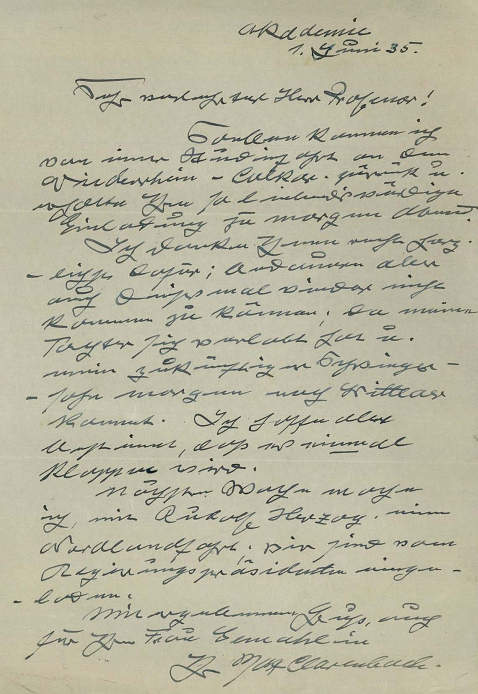 Akademie
1. Juni 35.
Sehr verehrter Herr Professor!
Soeben komme ich
von einer Studienfahrt an den
Niederrhein – Calkar. zurück u.
erhalte Ihre so liebenswürdige
Einladung zu morgen Abend.
Ich danke Ihnen recht herz-
-lichst dafür; bedauere aber
auch diesmal wieder nicht
kommen zu können; da meine
Tochter sich verlobt hat u.
mein zukünftiger Schwieger-
-sohn morgen nach Wittlaer
kommt. Ich hoffe aber
bestimmt, daß es einmal
klappen wird.
Nächste Woche mache
ich, mit Rudolf Herzog. eine
Nordlandfahrt. wir sind vom
Regierungspräsidenten einge-
-laden.
Mit ergebenem Gruß, auch
für Ihre Frau Gemahlin
Ihr Max Clarenbach.